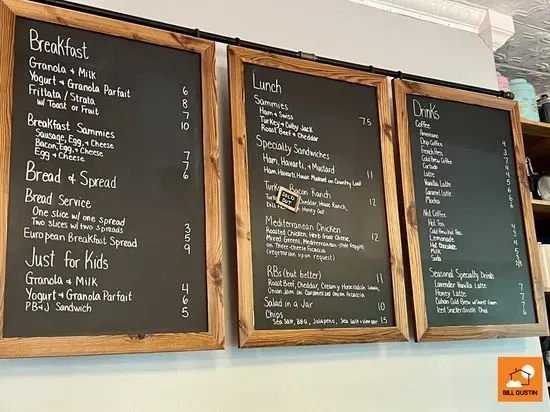 Breakfast
Granola & Milk 6
Yogurt & Granola Parfait 8
Frittata / Strata 7
w/ Toast or Fruit 10
Breakfast Sammies
Sausage, Egg, & Cheese 7
Bacon, Egg, & Cheese 7
Egg & Cheese 6
Bread & Spread
Bread Service
One slice w/ one spread 3
Two slices w/ two spreads 5
European Breakfast Spread 9
Just for Kids
Granola & Milk 4
Yogurt & Granola Parfait 6
PB&J Sandwich 5
Lunch
Sammies
Ham & Swiss
Turkey & Colby Jack 7.5
Roast Beef & Cheddar
Specialty Sandwiches
Ham, Havarti, & Mustard 11
Ham, Havarti, House Mustard on Country Loaf
Turkey Bacon Ranch 12
Cheddar, House Ranch,
Honey Oat
SOLD OUT
Mediterranean Chicken
Roasted Chicken, Herb Goat Cheese, 12
Mixed Greens, Mediterranean-style Veggies
on Three-cheese Focaccia
(vegetarian upon request)
RBs (but better) 11
Roast Beef, Cheddar, Creamy Horseradish Sauce,
Onion Jam on Caramelized Onion Focaccia
Salad in a Jar 10
Chips
Sea Salt, BBQ, Jalapeño, Sea Salt & Vinegar 1.5
Drinks
Coffee
Americano
Drip Coffee
French Press
Cold Brew Coffee
Cortado
Latte
Vanilla Latte
Caramel Latte
Mocha
Not Coffee
Hot Tea
Cold Brew Iced Tea
Lemonade
Hot Chocolate
Milk
Soda
Seasonal Specialty Drinks
Lavender Vanilla Latte 7
Honey Latte 7
Cuban Cold Brew w/ Sweet Foam 7
Iced Snickerdoodle Chai 7
BILL GUSTIN